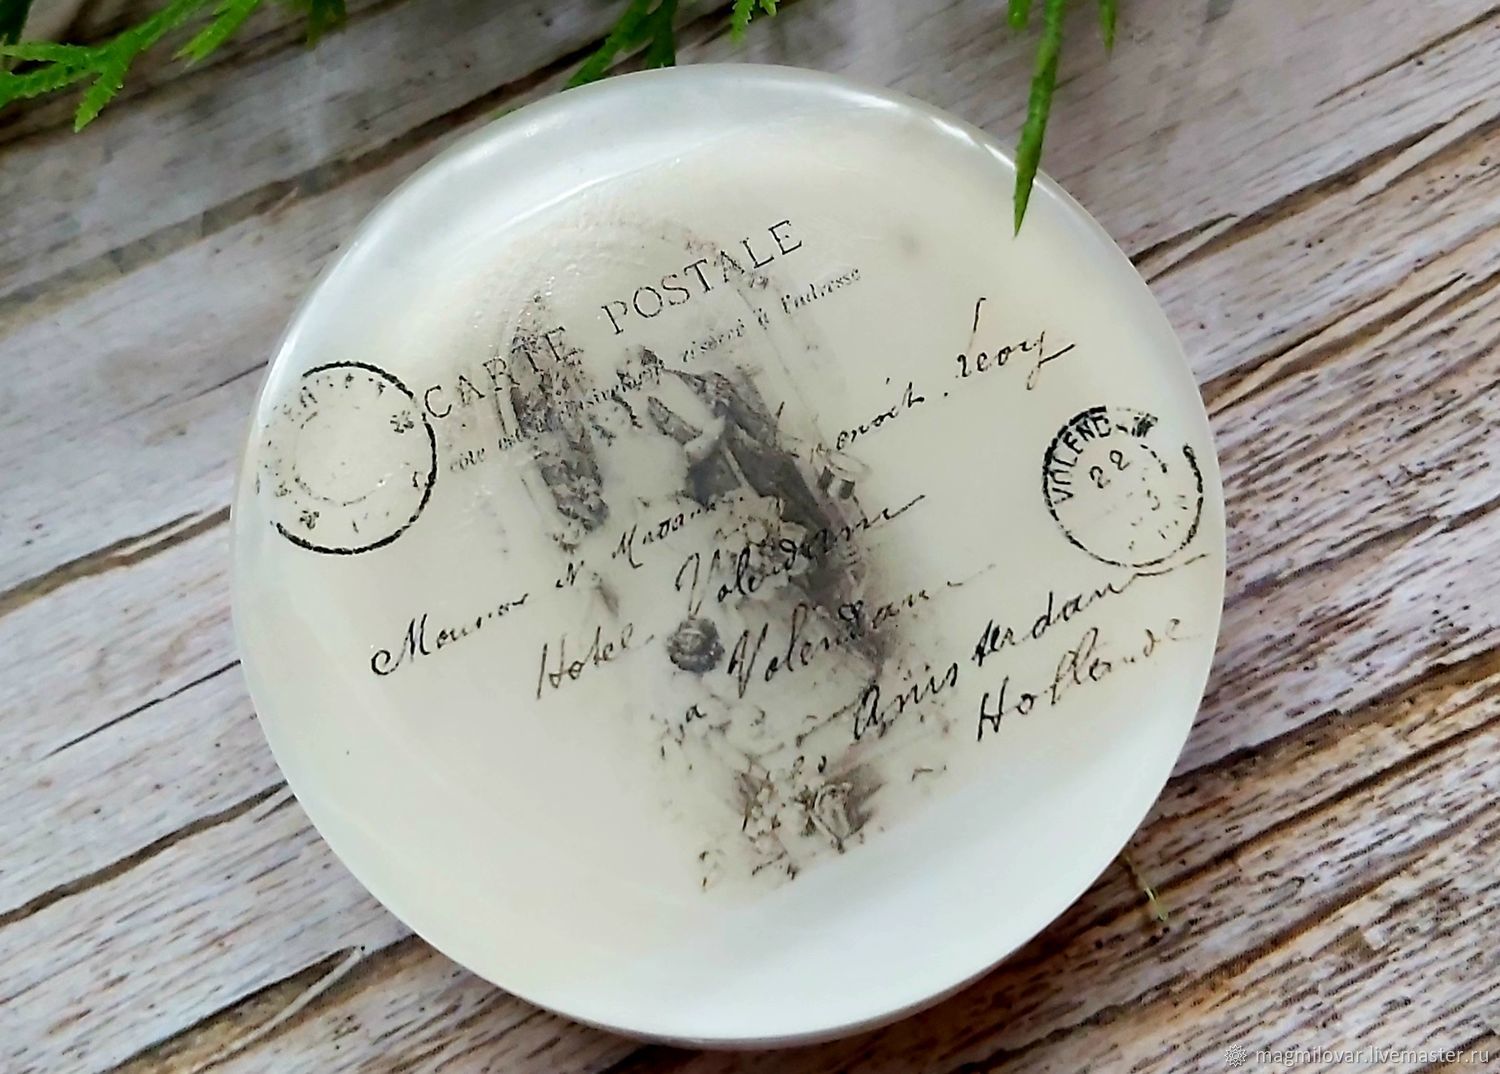 CARTE POSTALE
côté réservé à l'adresse
Monsieur & Madame Benoît Levy
Hotel Volendam
a Volendam
Amsterdam
Hollande
VOLEND
22
magmilovar.livemaster.ru